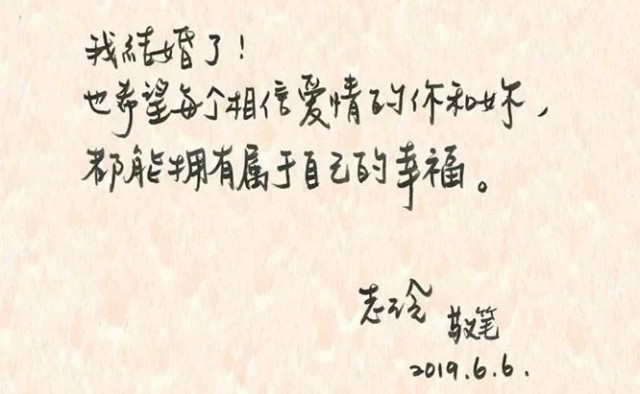 我結婚了！
也希望每个相信爱情的你和妳，
都能拥有属于自己的幸福。
志玲 敬笔
2019.6.6.